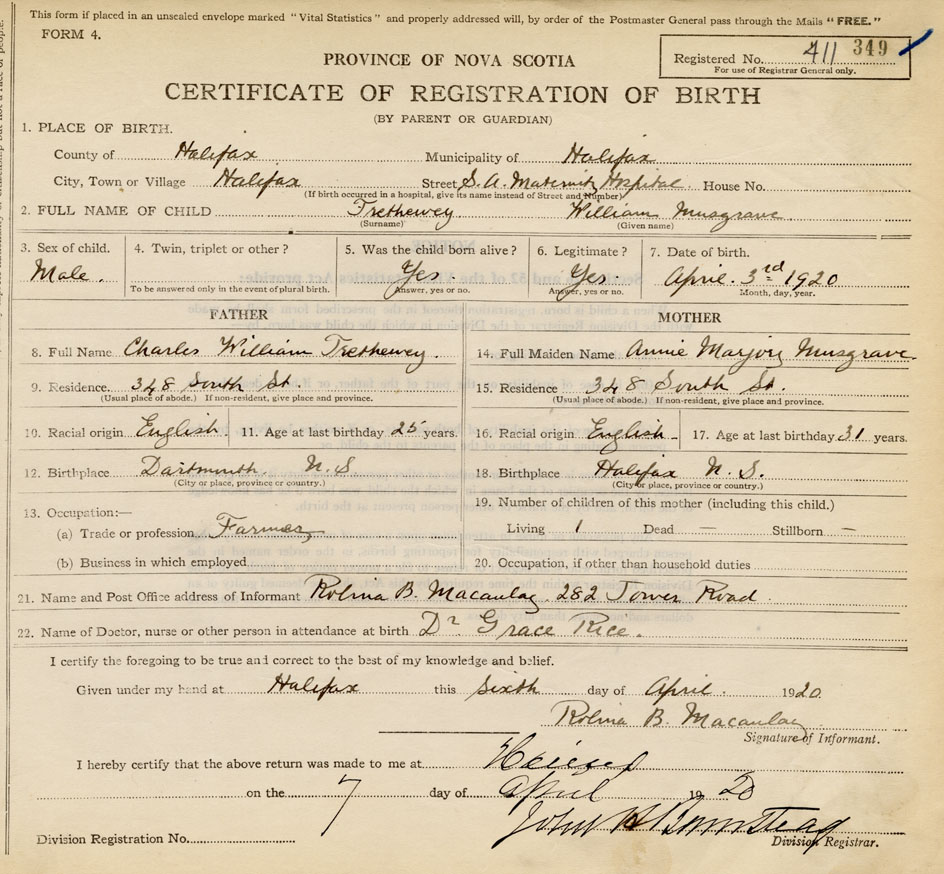 This form if placed in an unsealed envelope marked "Vital Statistics" and properly addressed will, by order of the Postmaster General pass through the Mails "FREE."
FORM 4.
Registered No. 411 349
For use of Registrar General only.
PROVINCE OF NOVA SCOTIA
CERTIFICATE OF REGISTRATION OF BIRTH
(BY PARENT OR GUARDIAN)
1. PLACE OF BIRTH.
County of Halifax Municipality of Halifax
City, Town or Village Halifax Street S. A. Maternity Hospital House No.
(If birth occurred in a hospital, give its name instead of Street and Number)
2. FULL NAME OF CHILD Trethewey William Musgrave
(Surname) (Given name)
3. Sex of child. 4. Twin, triplet or other? 5. Was the child born alive? 6. Legitimate? 7. Date of birth.
Male. Yes. Yes. April. 3rd 1920
To be answered only in the event of plural birth. Answer, yes or no. Answer, yes or no. Month, day, year.
FATHER MOTHER
8. Full Name Charles William Trethewey. 14. Full Maiden Name Annie Marjory Musgrave.
9. Residence. 348 South St. 15. Residence 348 South St.
(Usual place of abode.) If non-resident, give place and province. (Usual place of abode.) If non-resident, give place and province.
10. Racial origin English. 11. Age at last birthday 25 years. 16. Racial origin English 17. Age at last birthday 31 years.
12. Birthplace Dartmouth. N. S 18. Birthplace Halifax N. S.
(City or place, province or country.) (City or place, province or country.)
13. Occupation:— 19. Number of children of this mother (including this child.)
(a) Trade or profession Farmer Living 1 Dead — Stillborn —
(b) Business in which employed 20. Occupation, if other than household duties
21. Name and Post Office address of Informant Rolina B. Macaulay 282 Tower Road
22. Name of Doctor, nurse or other person in attendance at birth Dr Grace Rice.
I certify the foregoing to be true and correct to the best of my knowledge and belief.
Given under my hand at Halifax this Sixth day of April. 1920.
Rolina B. Macaulay
Signature of Informant.
I hereby certify that the above return was made to me at
on the 7 day of April 19 20
John
Division Registration No. Division Registrar.